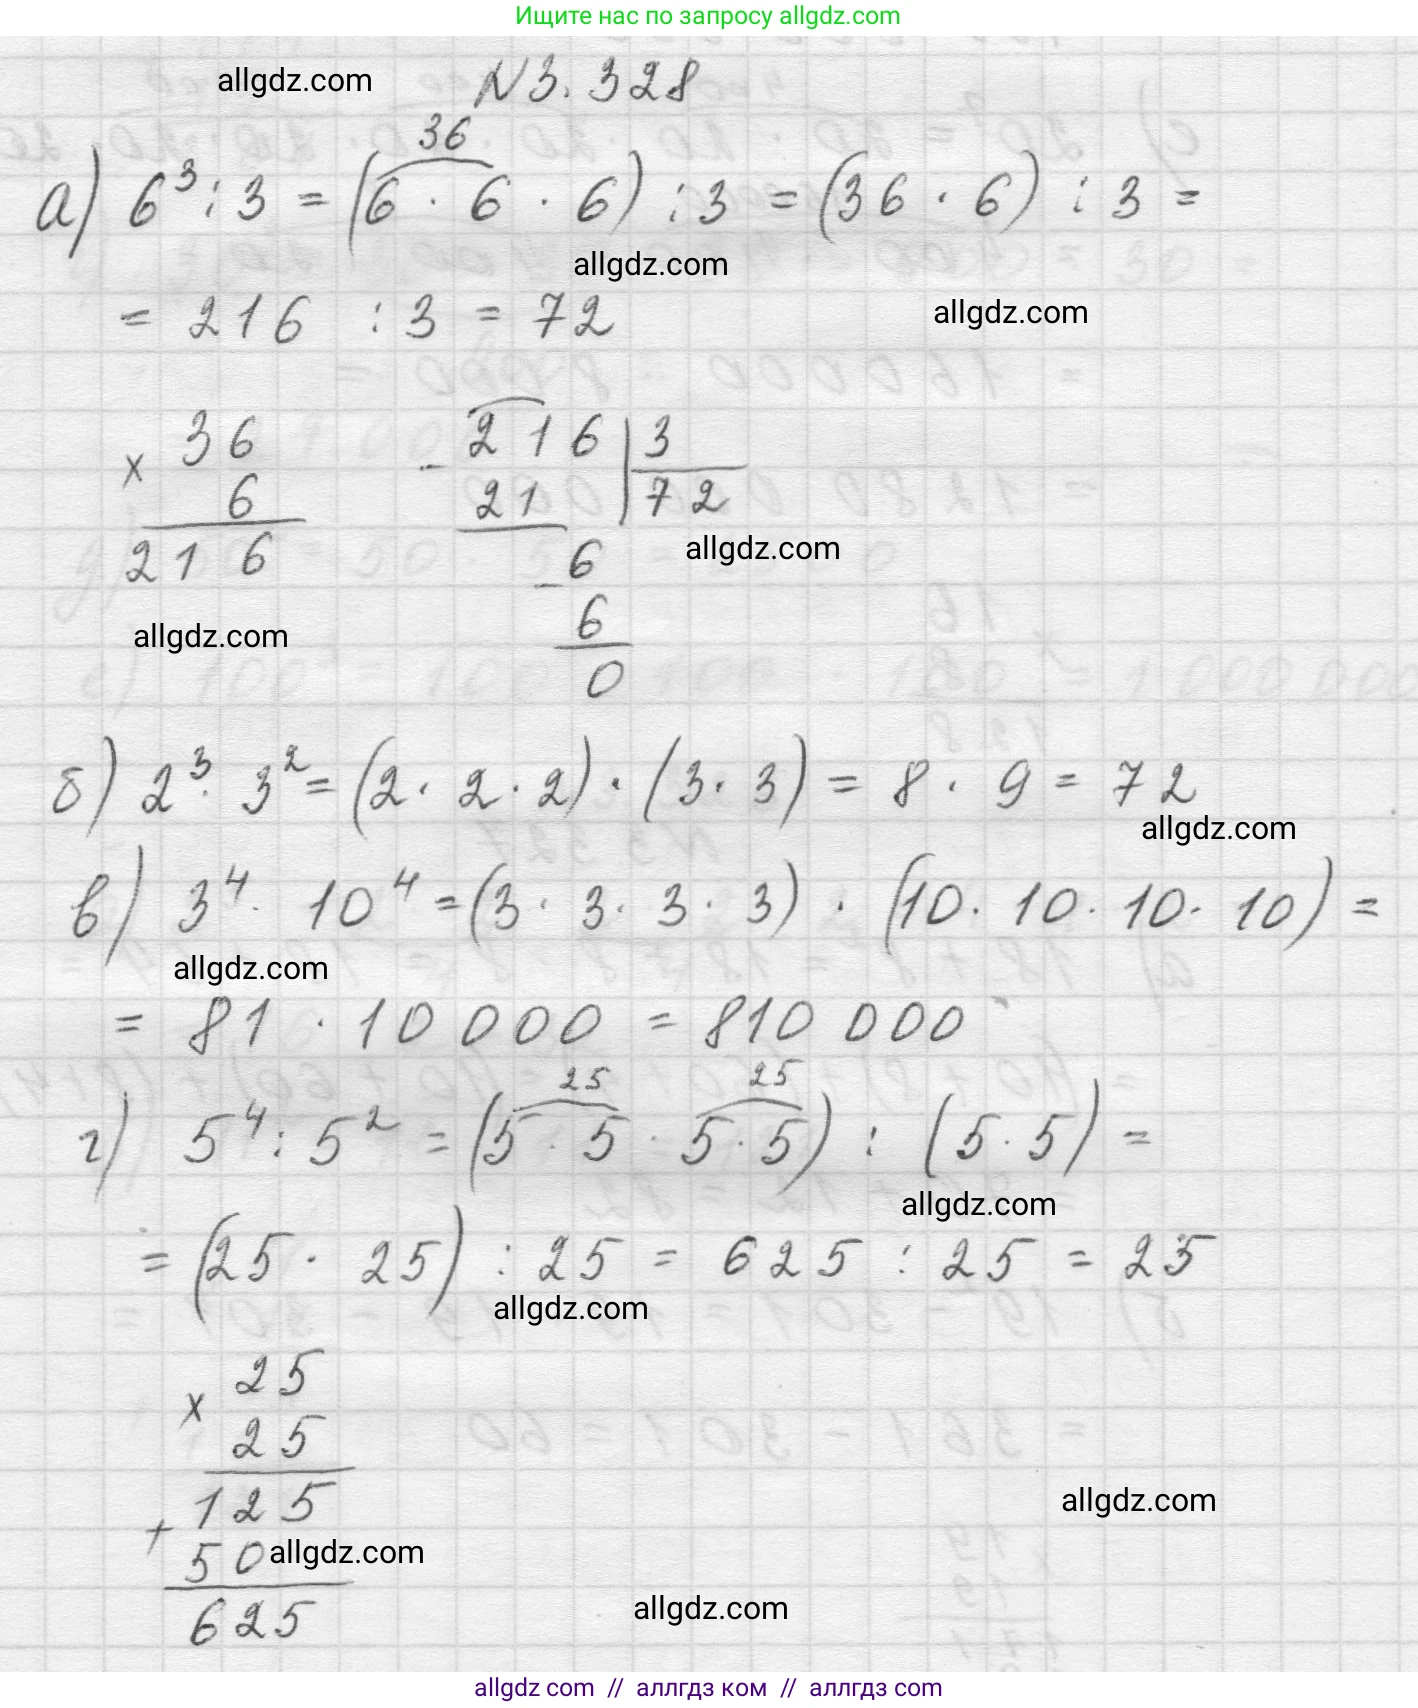 Ищите нас по запросу allgdz.com
allgdz.com
N 3. 328
36
а) 6³ : 3 = (6 · 6 · 6) : 3 = (36 · 6) : 3 =
allgdz.com
= 216 : 3 = 72
allgdz.com
36 - 216 | 3
x 6 21 | 72
216 6
allgdz.com
- 6
allgdz.com
0
б) 2³ · 3² = (2 · 2 · 2) · (3 · 3) = 8 · 9 = 72
allgdz.com
в) 3⁴ · 10⁴ = (3 · 3 · 3 · 3) · (10 · 10 · 10 · 10) =
allgdz.com
= 81 · 10 000 = 810 000
25 25
г) 5⁴ : 5² = (5 · 5 · 5 · 5) : (5 · 5) =
allgdz.com
= (25 · 25) : 25 = 625 : 25 = 25
allgdz.com
25
x 25
125
allgdz.com
+ 50
allgdz.com
625
allgdz.com
allgdz com // аллгдз ком // аллгдз com